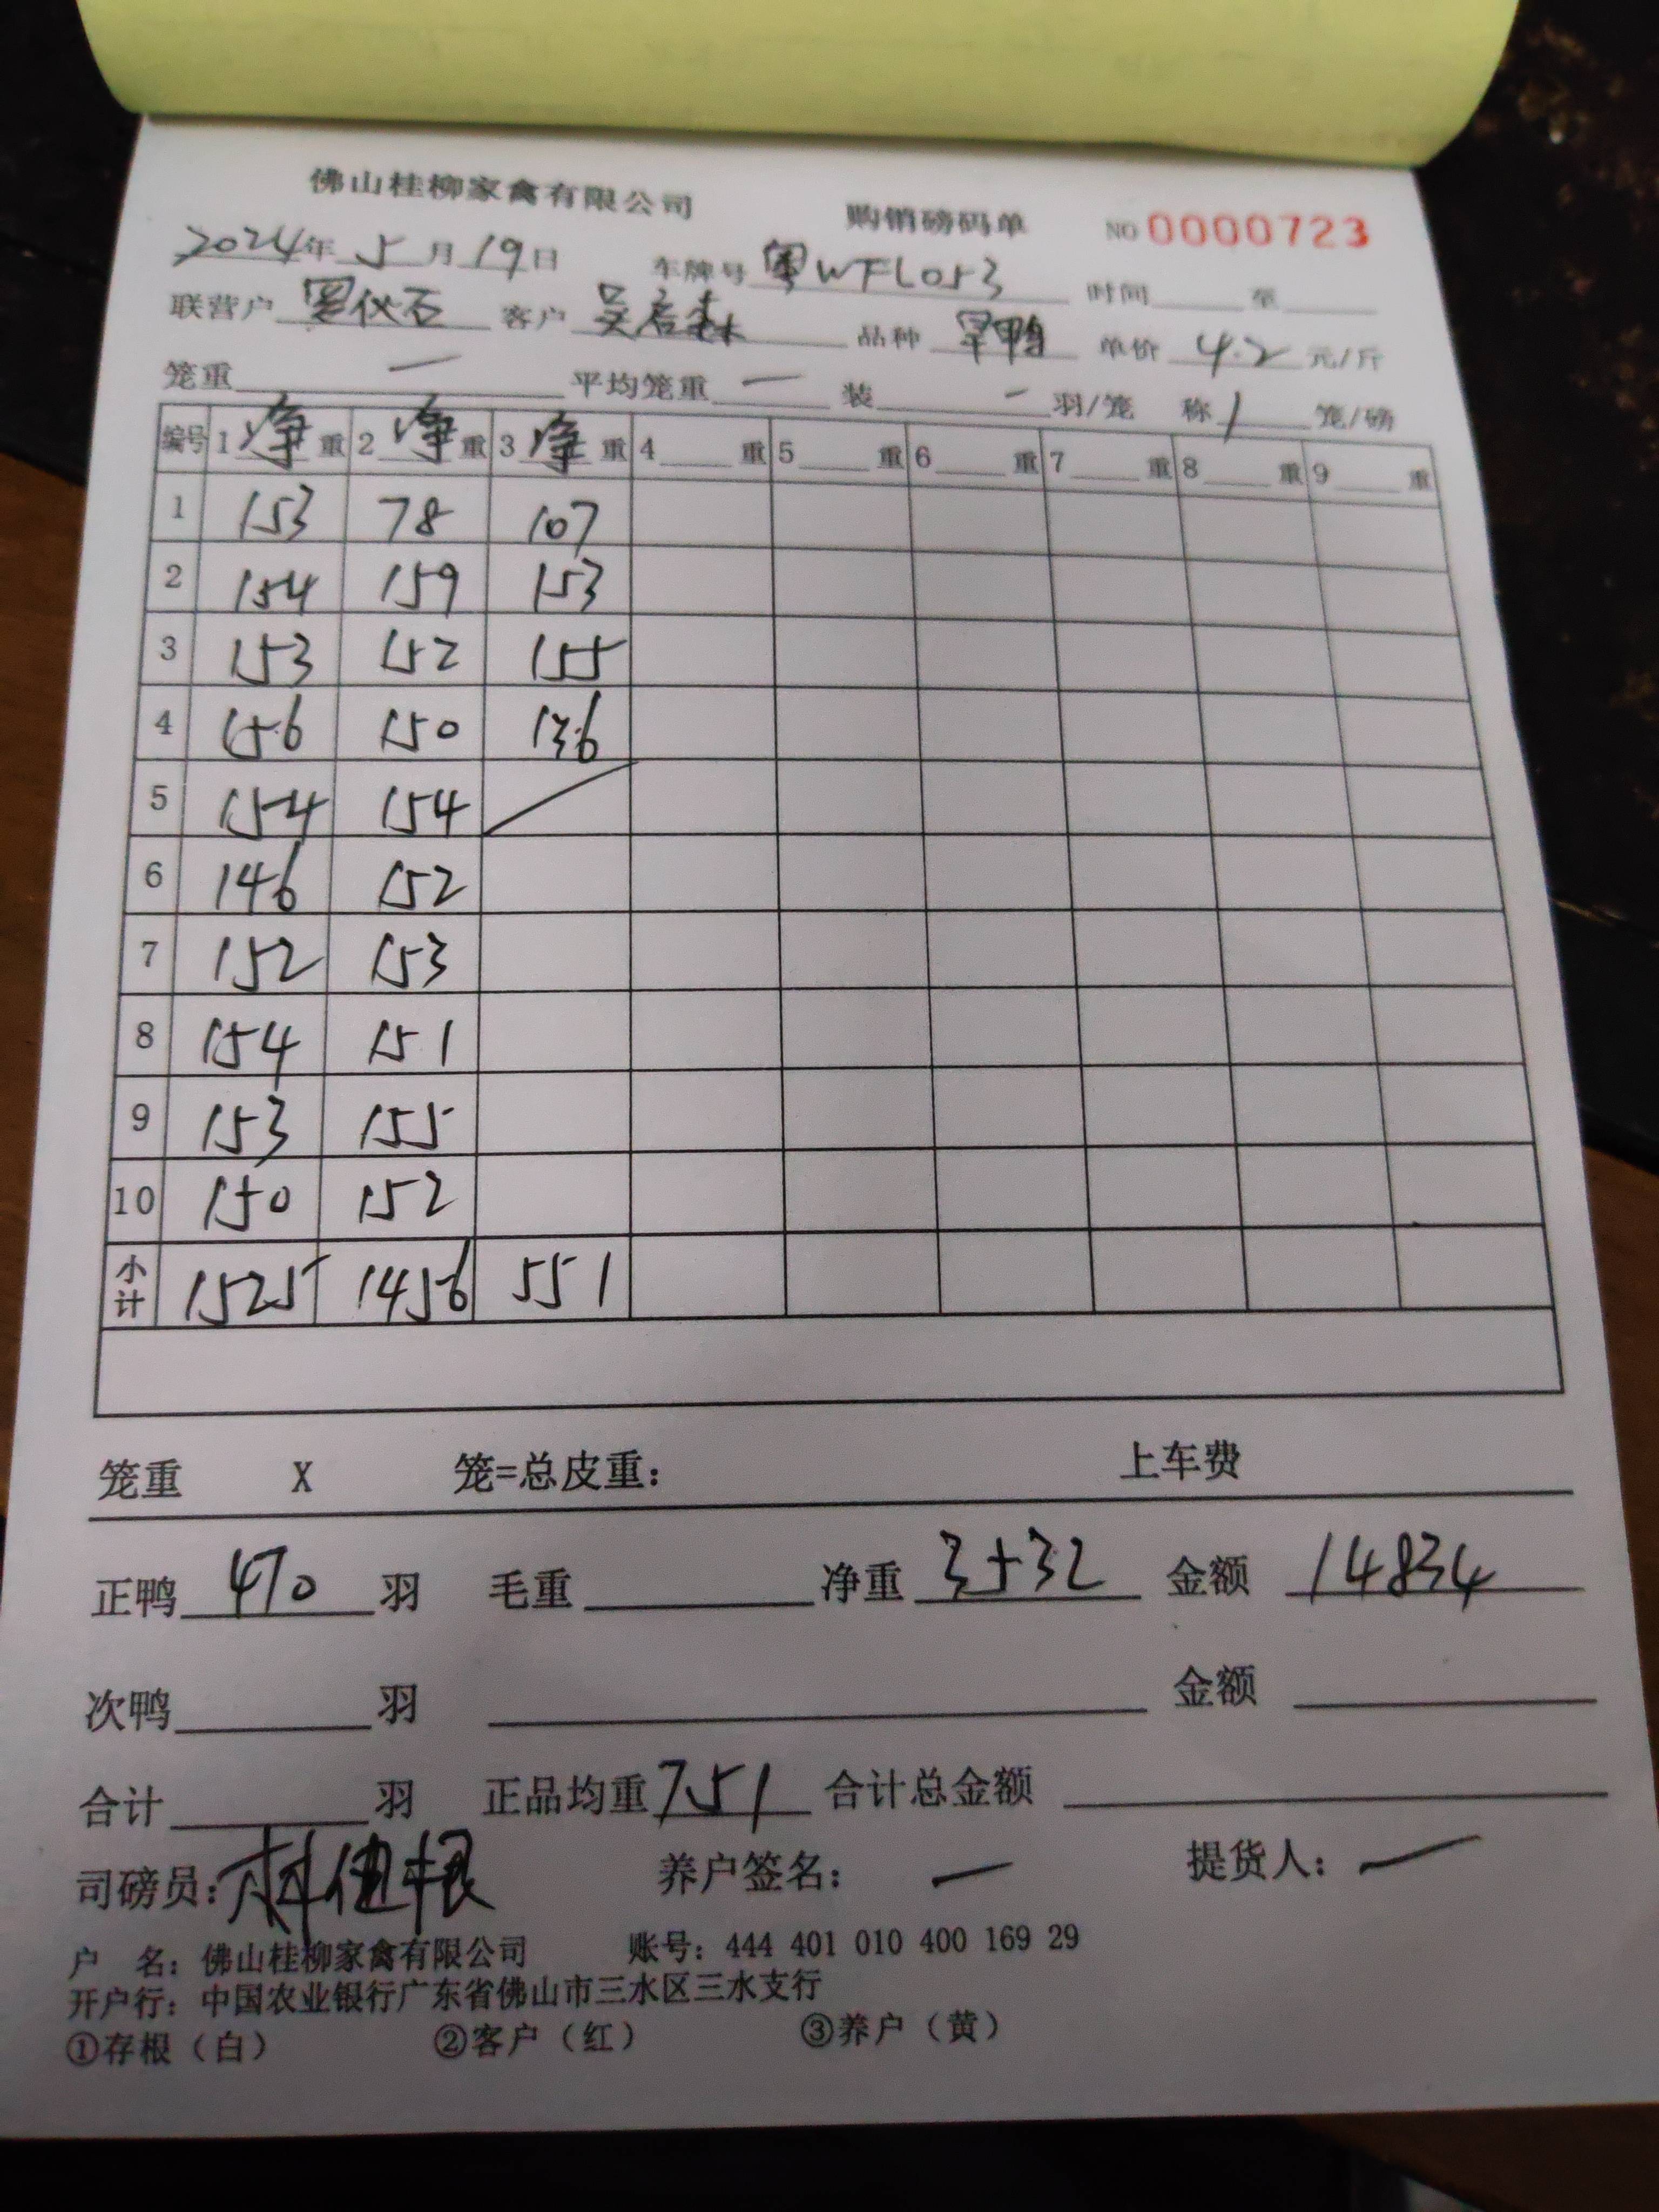 佛山桂柳家禽有限公司 购销磅码单 NO 0000723
2024年 5 月 19 日 车牌号 粤WFL053 时间 至
联营户 罗伙石 客户 吴启森 品种 旱鸭 单价 4.2 元/斤
笼重 一 平均笼重 一 装 - 羽/笼 称 1 笼/磅
编号 1 净 重 2 净 重 3 净 重 4 重 5 重 6 重 7 重 8 重 9 重
1 153 78 107
2 154 159 153
3 153 152 155
4 156 150 136
5 154 154
6 146 152
7 152 153
8 154 151
9 153 155
10 150 152
小计 1525 1456 551
笼重 X 笼=总皮重: 上车费
正鸭 470 羽 毛重 净重 3532 金额 14834
次鸭 羽 金额
合计 羽 正品均重 7.51 合计总金额
司磅员: 养户签名: 一 提货人: 一
户 名: 佛山桂柳家禽有限公司 账号: 444 401 010 400 169 29
开户行: 中国农业银行广东省佛山市三水区三水支行
①存根（白） ②客户（红） ③养户（黄）